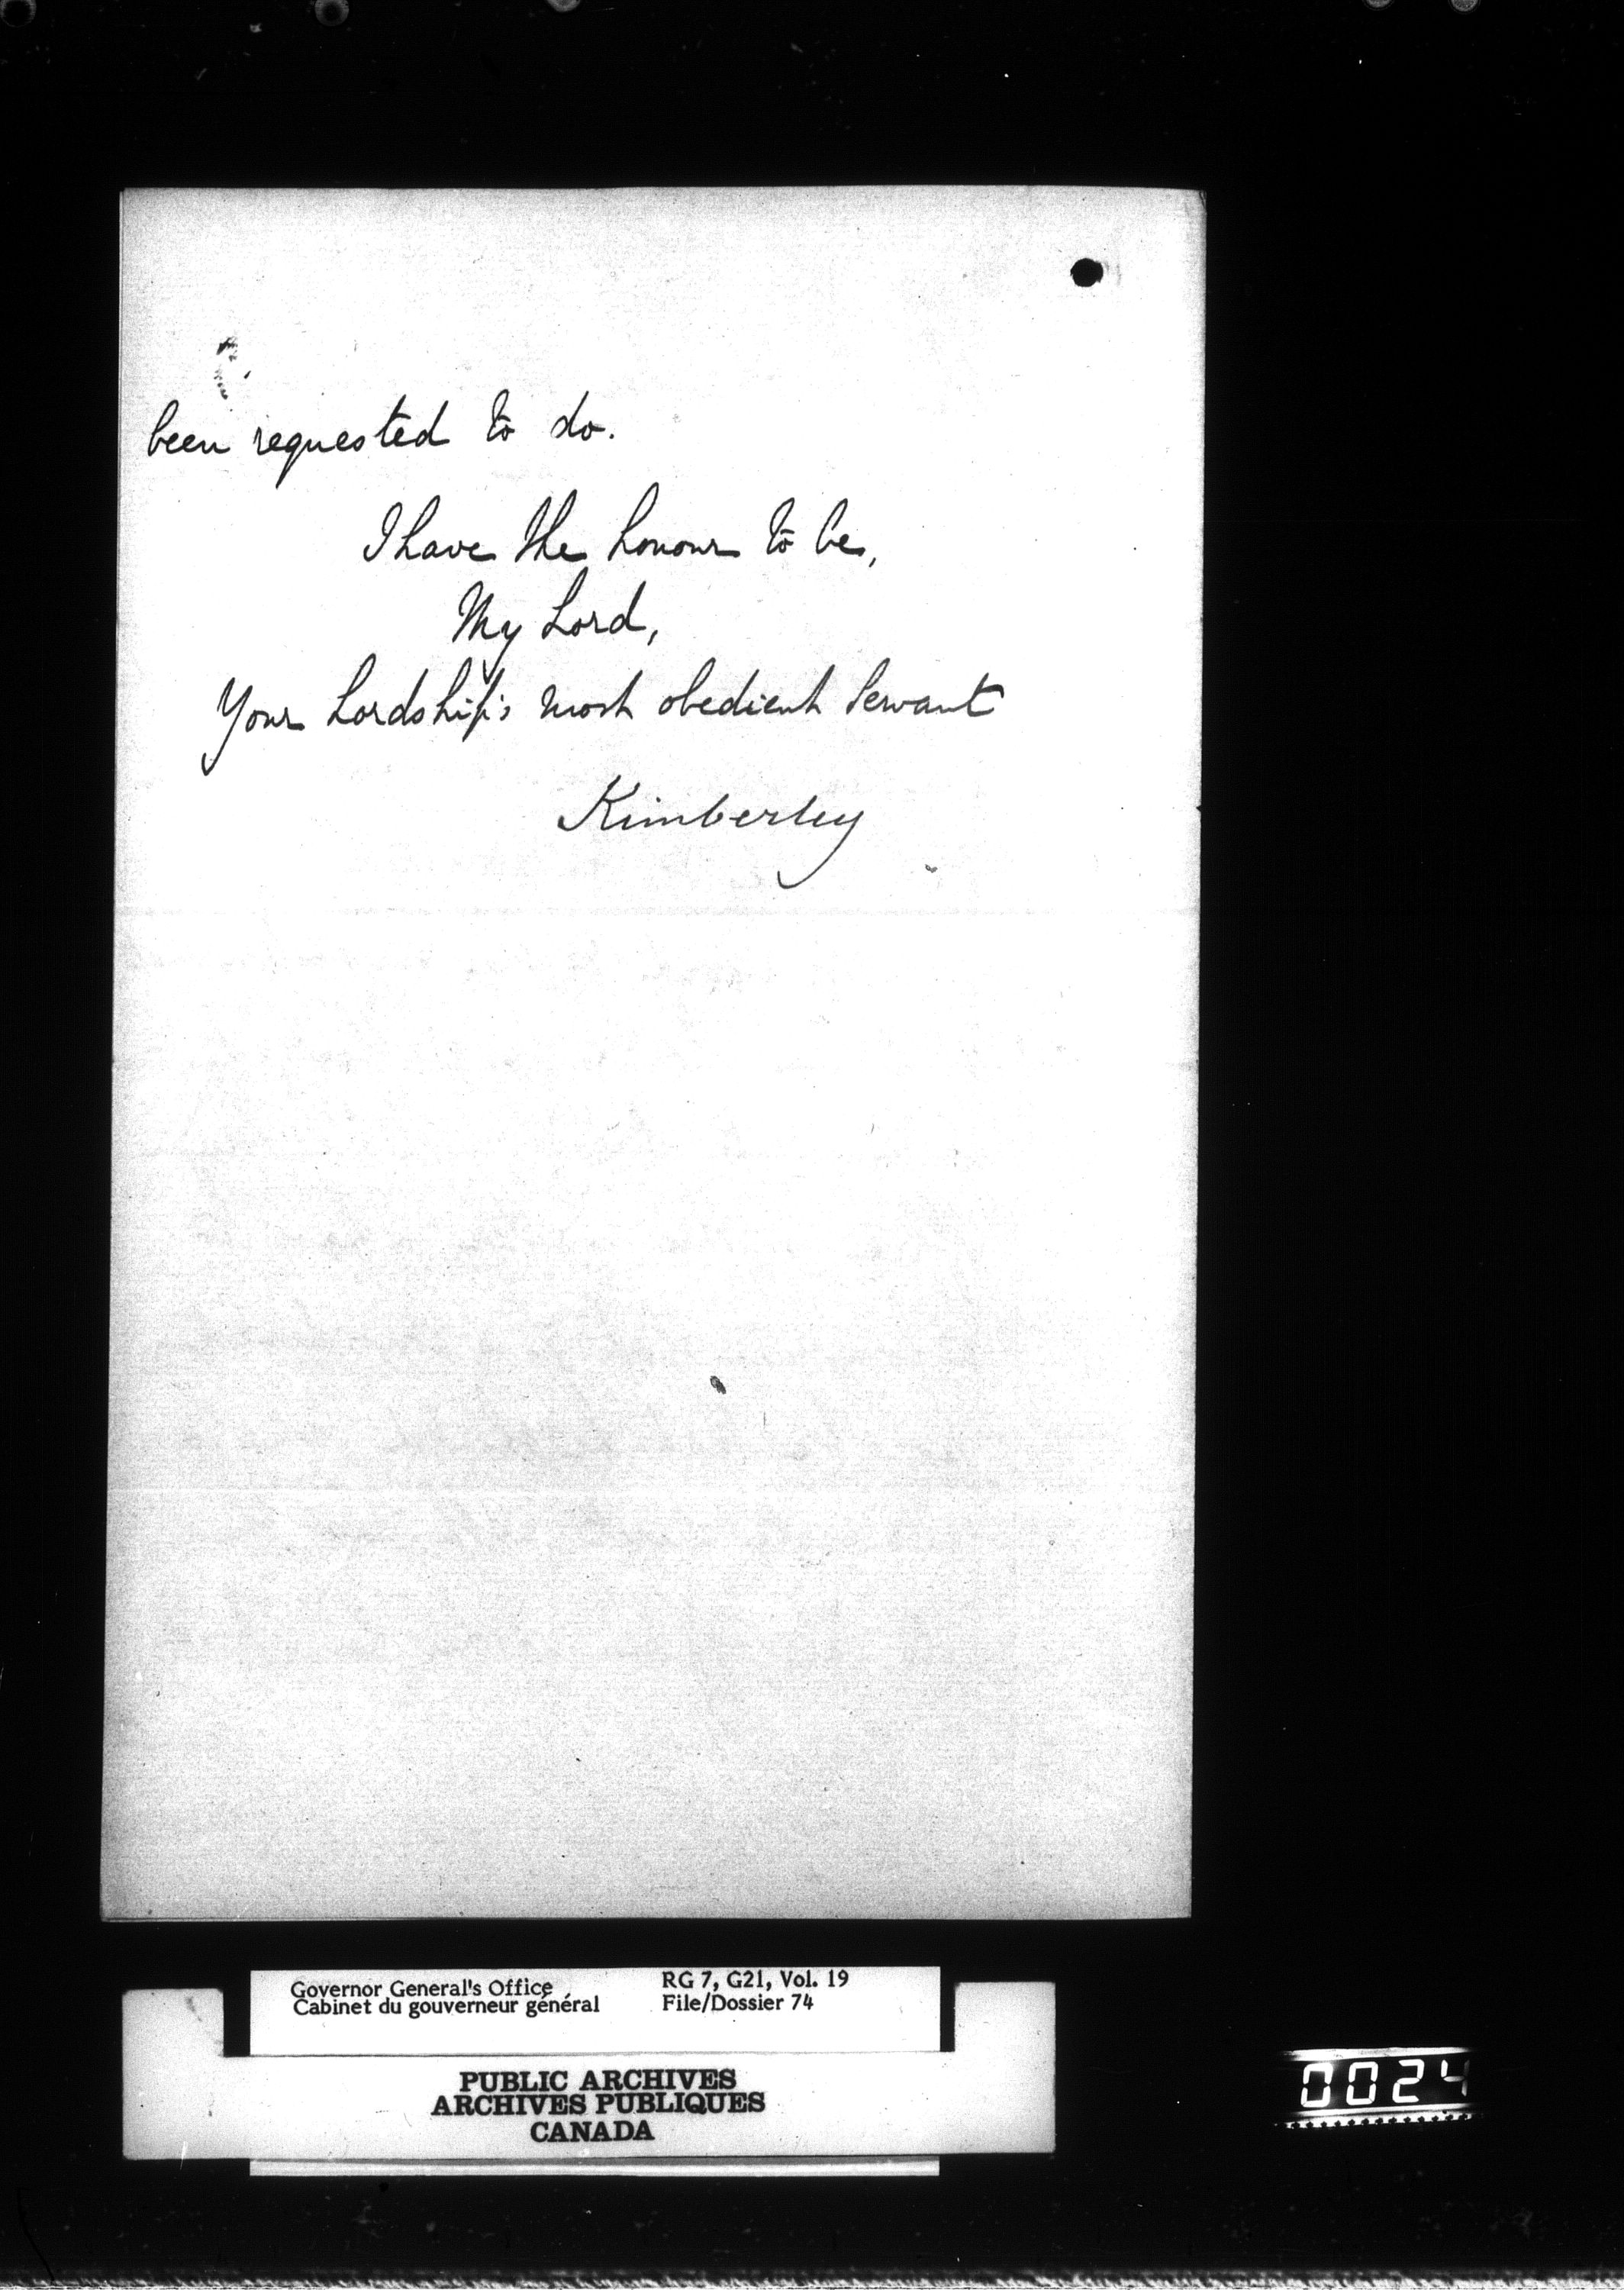 been requested to do.
I have the honour to be,
My Lord,
Your Lordship's most obedient Servant
Kimberley
Governor General's Office
Cabinet du gouverneur général
RG 7, G21, Vol. 19
File/Dossier 74
PUBLIC ARCHIVES
ARCHIVES PUBLIQUES
CANADA
0024